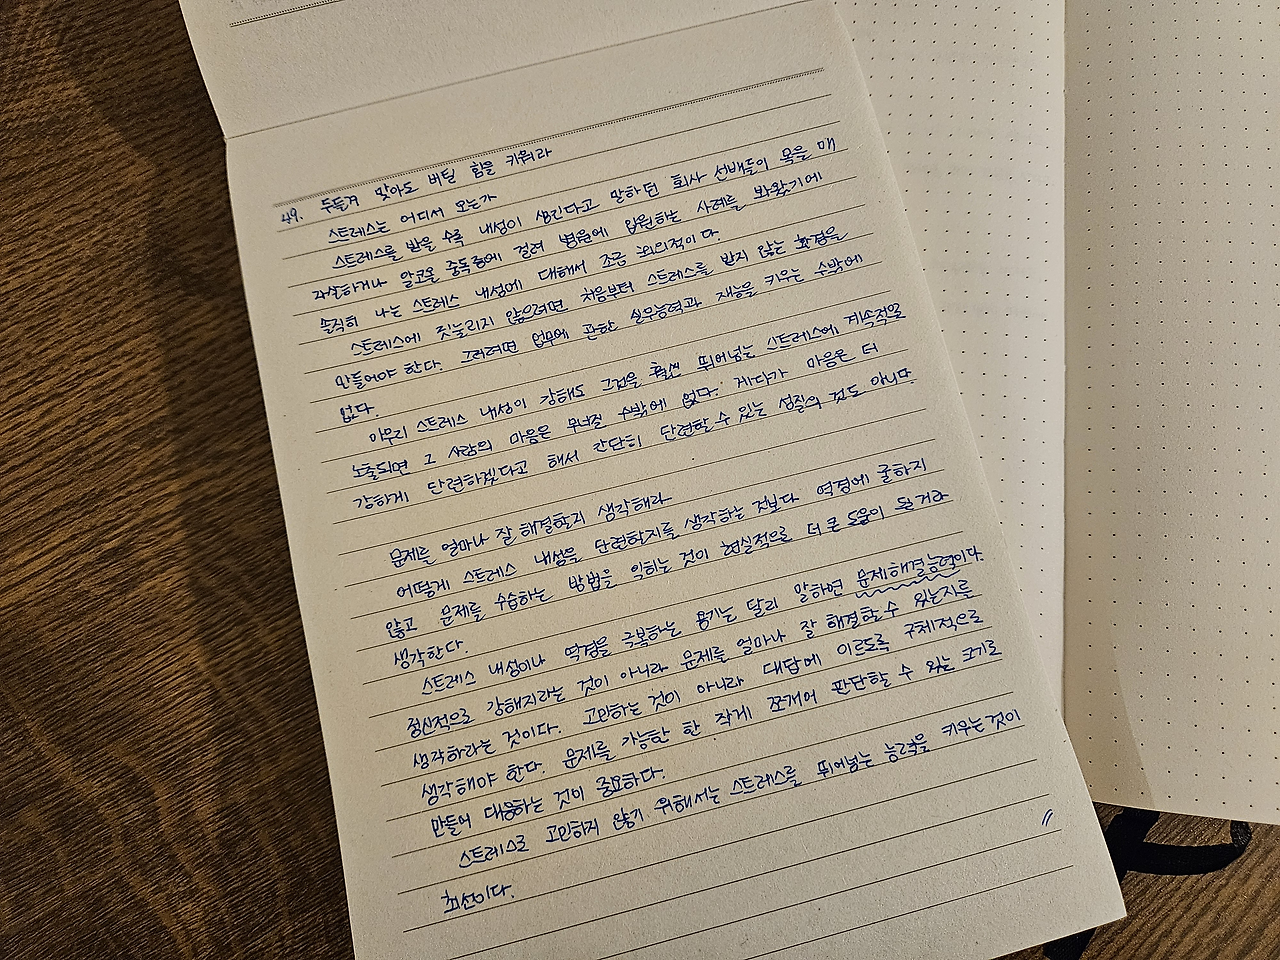 49. 두들겨 맞아도 버틸 힘을 키워라
스트레스는 어디서 오는가
스트레스를 받을 수록 내성이 생긴다고 말하던 회사 선배들이 목을 매
자살하거나 알코올 중독증에 걸려 병원에 입원하는 사례를 봐왔기에
솔직히 나는 스트레스 내성에 대해서 조금 회의적이다.
스트레스에 짓눌리지 않으려면 처음부터 스트레스를 받지 않는 환경을
만들어야 한다. 그러려면 업무에 관한 실무능력과 재능을 키우는 수밖에
없다.
아무리 스트레스 내성이 강해도 그것을 훨씬 뛰어넘는 스트레스에 계속적으로
노출되면 그 사람의 마음은 무너질 수밖에 없다. 게다가 마음은 더
강하게 단련하겠다고 해서 간단히 단련할 수 있는 성질의 것도 아니다.
문제를 얼마나 잘 해결할지 생각해라
어떻게 스트레스 내성을 단련할지를 생각하는 것보다 역경에 굴하지
않고 문제를 수습하는 방법을 익히는 것이 현실적으로 더 큰 도움이 될거라
생각한다.
스트레스 내성이나 역경을 극복하는 용기는 달리 말하면 문제해결능력이다.
정신적으로 강해지라는 것이 아니라 문제를 얼마나 잘 해결할 수 있는지를
생각하라는 것이다. 고민하는 것이 아니라 대답에 이르도록 구체적으로
생각해야 한다. 문제를 가능한 한 작게 쪼개어 판단할 수 있는 크기로
만들어 대응하는 것이 중요하다.
스트레스로 고민하지 않기 위해서는 스트레스를 뛰어넘는 능력을 키우는것이
최선이다.